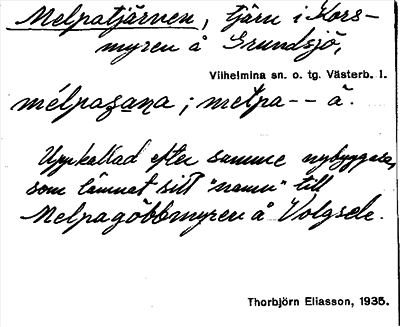 Melpatjärnen, tjärn i Kors-
myren å Grundsjö,
Vilhelmina sn. o. tg. Västerb. l.
mélpaʒana ; melpa -- ä.
Uppkallad efter samme nybyggare,
som lämnat sitt "namn" till
Melpagöbbmyren å Volgsele.
Thorbjörn Eliasson, 1935.